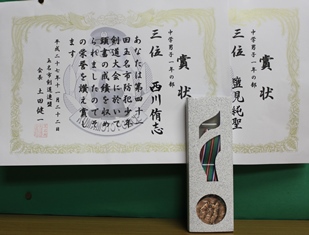 賞状
中学男子一年の部
三位 西川侑志
あなたは第四十一
回玉名市防犯少年
剣道大会に於いて
頭書の成績を収め
られましたのでそ
の栄誉を讃え賞し
ます
平成二十七年十一月二十二日
玉名市剣道連盟
会長 土田健一
賞状
中学男子一年の部
三位 塩見純聖